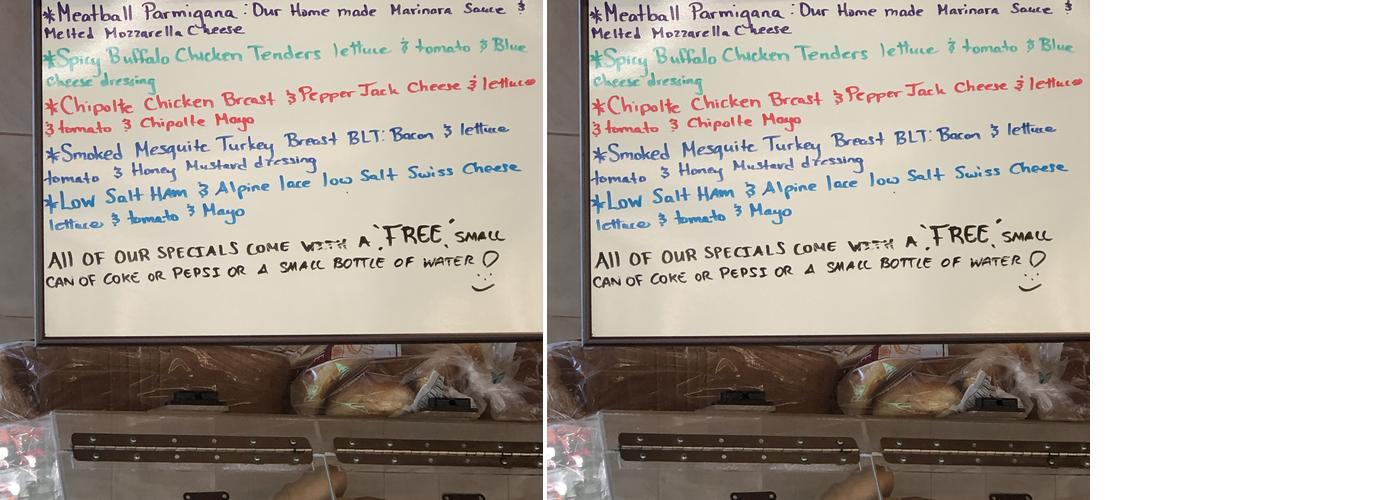 *Meatball Parmigana : Our Home made Marinara Sauce &
Melted Mozzarella Cheese
*Spicy Buffalo Chicken Tenders lettuce & tomato & Blue
cheese dressing
*Chipolte Chicken Breast & Pepper Jack Cheese & lettuce
& tomato & Chipolte Mayo
*Smoked Mesquite Turkey Breast BLT: Bacon & lettuce
tomato & Honey Mustard dressing
*Low Salt HAm & Alpine lace low Salt Swiss Cheese
lettuce & tomato & Mayo
All OF OUR SPECIALS COME WITH A "FREE" SMALL
CAN OF COKE OR PEPSI OR A SMALL BOTTLE OF WATER
*Meatball Parmigana : Our Home made Marinara Sauce &
Melted Mozzarella Cheese
*Spicy Buffalo Chicken Tenders lettuce & tomato & Blue
cheese dressing
*Chipolte Chicken Breast & Pepper Jack Cheese & lettuce
& tomato & Chipolte Mayo
*Smoked Mesquite Turkey Breast BLT: Bacon & lettuce
tomato & Honey Mustard dressing
*Low Salt HAm & Alpine lace low Salt Swiss Cheese
lettuce & tomato & Mayo
All OF OUR SPECIALS COME WITH A "FREE" SMALL
CAN OF COKE OR PEPSI OR A SMALL BOTTLE OF WATER